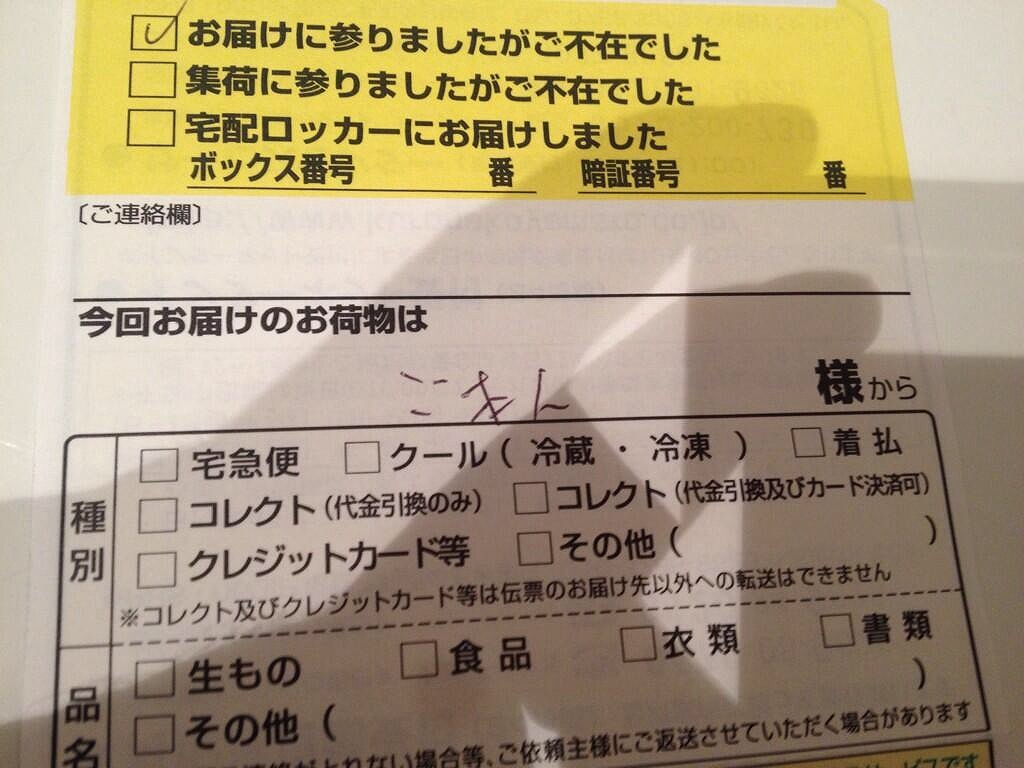 お届けに参りましたがご不在でした
集荷に参りましたがご不在でした
宅配ロッカーにお届けしました
ボックス番号 番 暗証番号 番
〔ご連絡欄〕
今回お届けのお荷物は
ごきん 様から
種別
宅急便 クール（ 冷蔵 ・ 冷凍 ） 着払
コレクト（代金引換のみ） コレクト（代金引換及びカード決済可）
クレジットカード等 その他（ ）
※コレクト及びクレジットカード等は伝票のお届け先以外への転送はできません
品名
生もの 食品 衣類 書類
その他（ ）
がとれない場合等、ご依頼主様にご返送させていただく場合があります